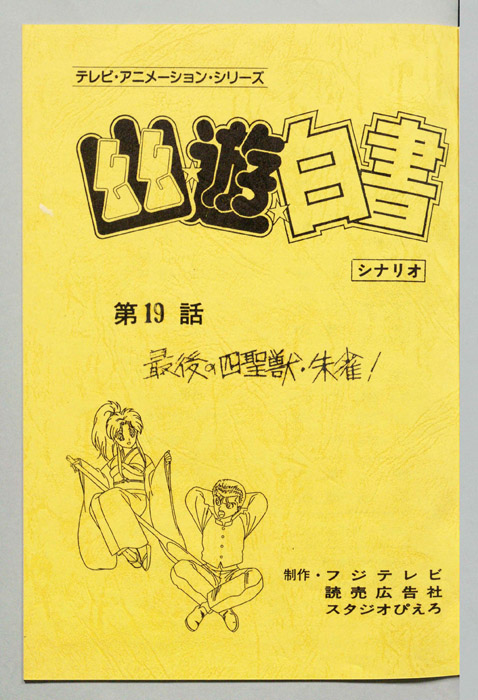 テレビ・アニメーション・シリーズ
幽☆遊☆白書
シナリオ
第19話
最後の四聖獣・朱雀!
制作・フジテレビ
読売広告社
スタジオぴえろ